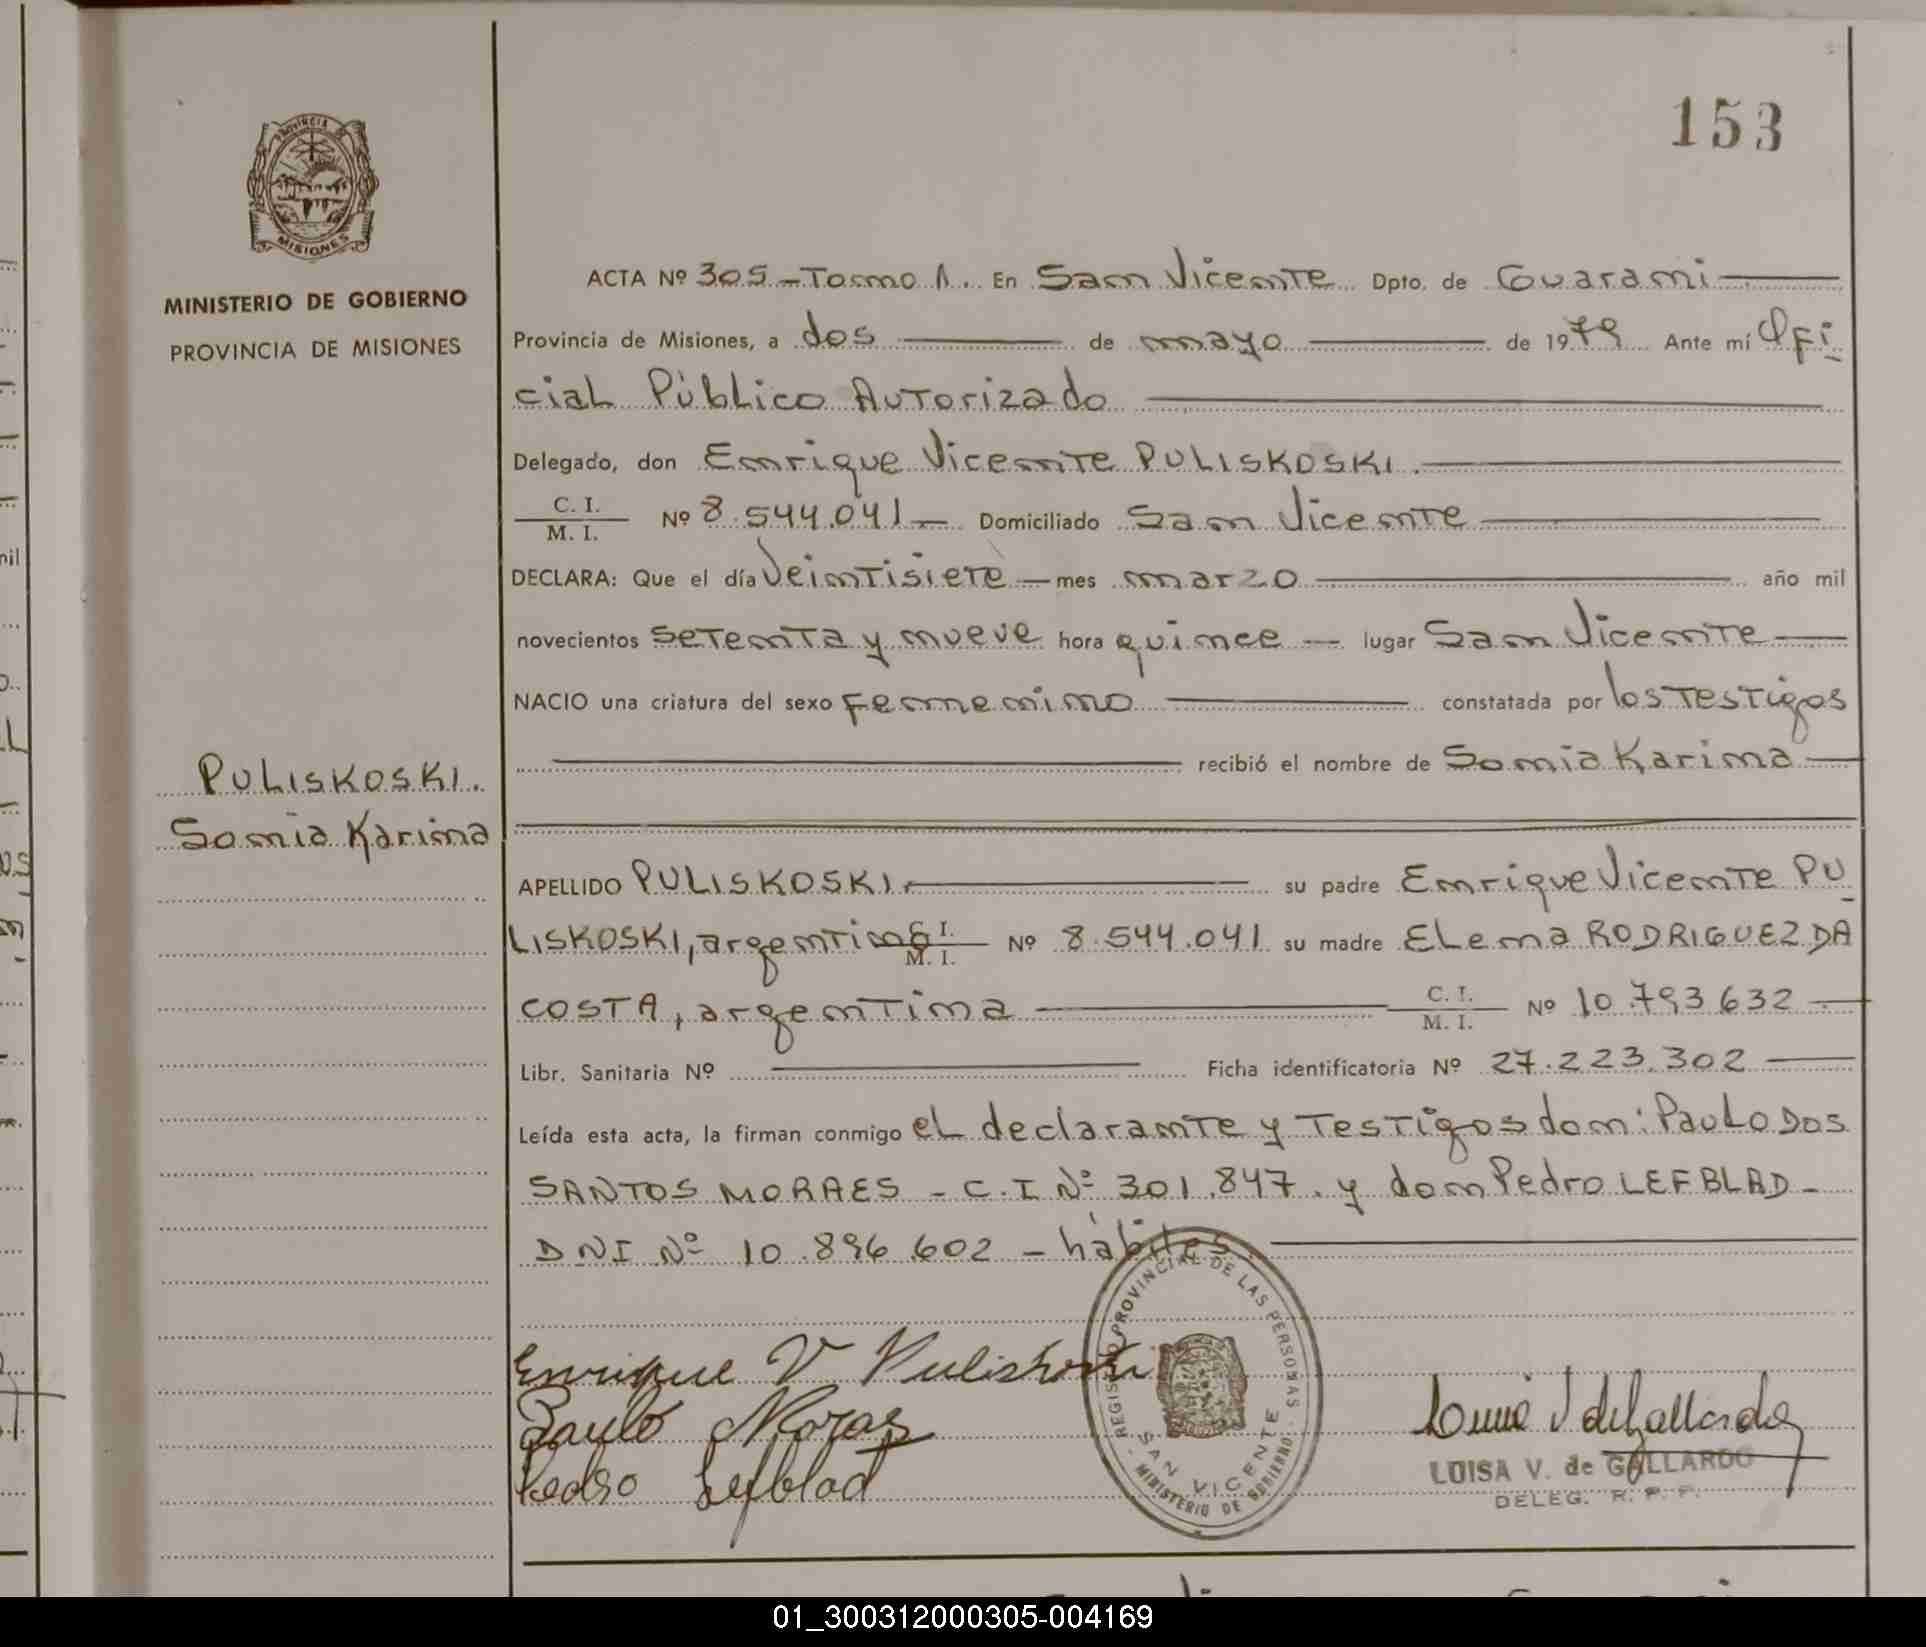 153
PROVINCIA DE
MISIONES
MINISTERIO DE GOBIERNO
PROVINCIA DE MISIONES
ACTA Nº 305 - Tomo 1. En San Vicente Dpto. de Guarani
Provincia de Misiones, a dos de mayo de 1979 Ante mí Ofi
cial Público Autorizado
Delegado, don Enrique Vicente PULISKOSKI.
C. I.
M. I. Nº 8.544.041 - Domiciliado San Vicente
DECLARA: Que el día Veintisiete - mes marzo año mil
novecientos setenta y nueve hora quince - lugar San Vicente
NACIO una criatura del sexo femenino constatada por los testigos
recibió el nombre de Sonia Karina
PULISKOSKI.
Sonia Karina
APELLIDO PULISKOSKI. su padre Enrique Vicente PU
LISKOSKI, argentino C. I. M. I. Nº 8.544.041 su madre Elena RODRIGUEZ DA
COSTA, argentina C. I. M. I. Nº 10.793.632
Libr. Sanitaria Nº Ficha identificatoria Nº 27.223.302
Leída esta acta, la firman conmigo el declarante y testigos don: Paulo DOS
SANTOS MORAES - C.I Nº 301.847. y don Pedro LEFBLAD -
DNI Nº 10.896.602 - hábiles.
Enrique V Puliskoski
Paulo Moras
Pedro Lefblad
REGISTRO PROVINCIAL DE LAS PERSONAS
SAN VICENTE
MINISTERIO DE GOBIERNO
LUISA V. de GALLARDO
DELEG. R. P. P.
01_300312000305-004169